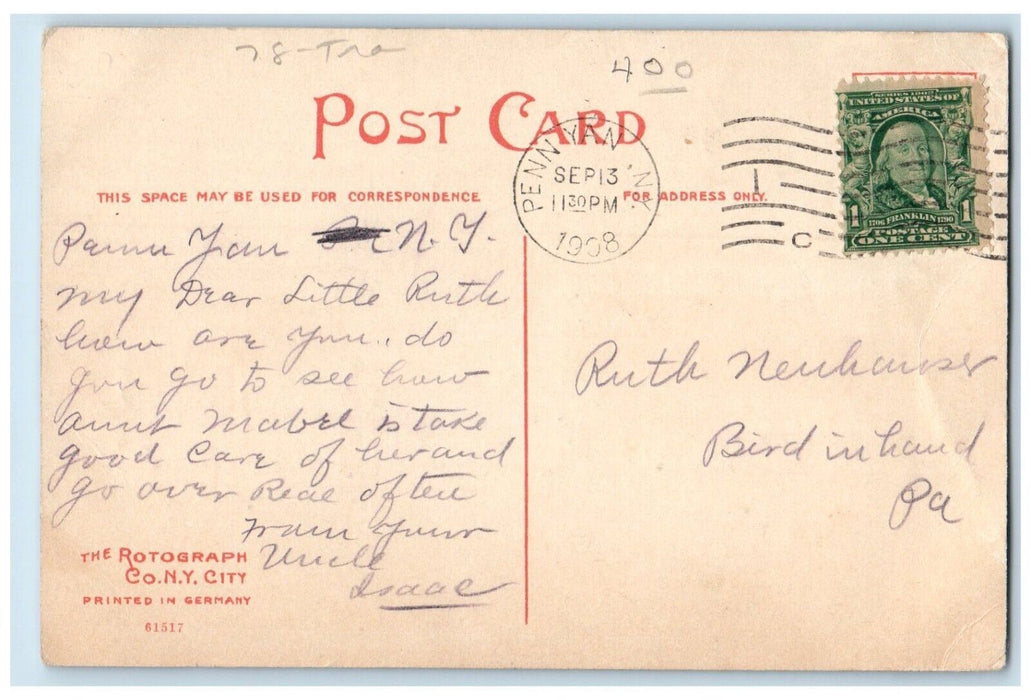 78-Tra
400
POST CARD
THIS SPACE MAY BE USED FOR CORRESPONDENCE
FOR ADDRESS ONLY.
PENN YAN N.Y.
SEP 13
11 30 PM
1908
C
SERIES 1902
UNITED STATES OF
AMERICA
1 1706 FRANKLIN 1790 1
POSTAGE
ONE CENT
Penn Yan N.Y.
my Dear Little Ruth
how are you., do
you go to see how
aunt Mabel is take
good Care of her and
go over Reae often
From your
Uncle
Isaac
Ruth Neuhauser
Bird in hand
Pa
THE ROTOGRAPH
CO. N.Y. CITY
PRINTED IN GERMANY
61517